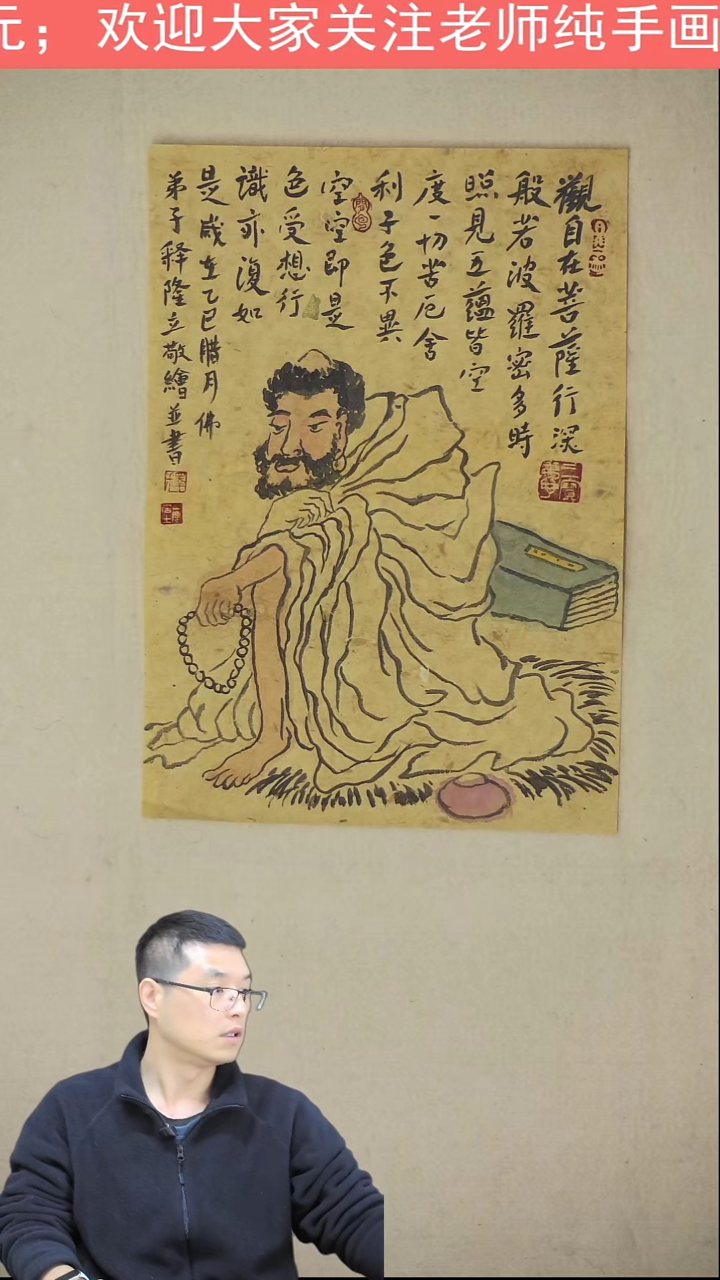 元；欢迎大家关注老师纯手画
觀自在菩薩行深
般若波羅密多時
照見五蘊皆空
度一切苦厄舍
利子色不異
空空即是
色受想行
識亦復如
是歲在乙巳腊月佛
弟子释隆立敬繪並書
三寶